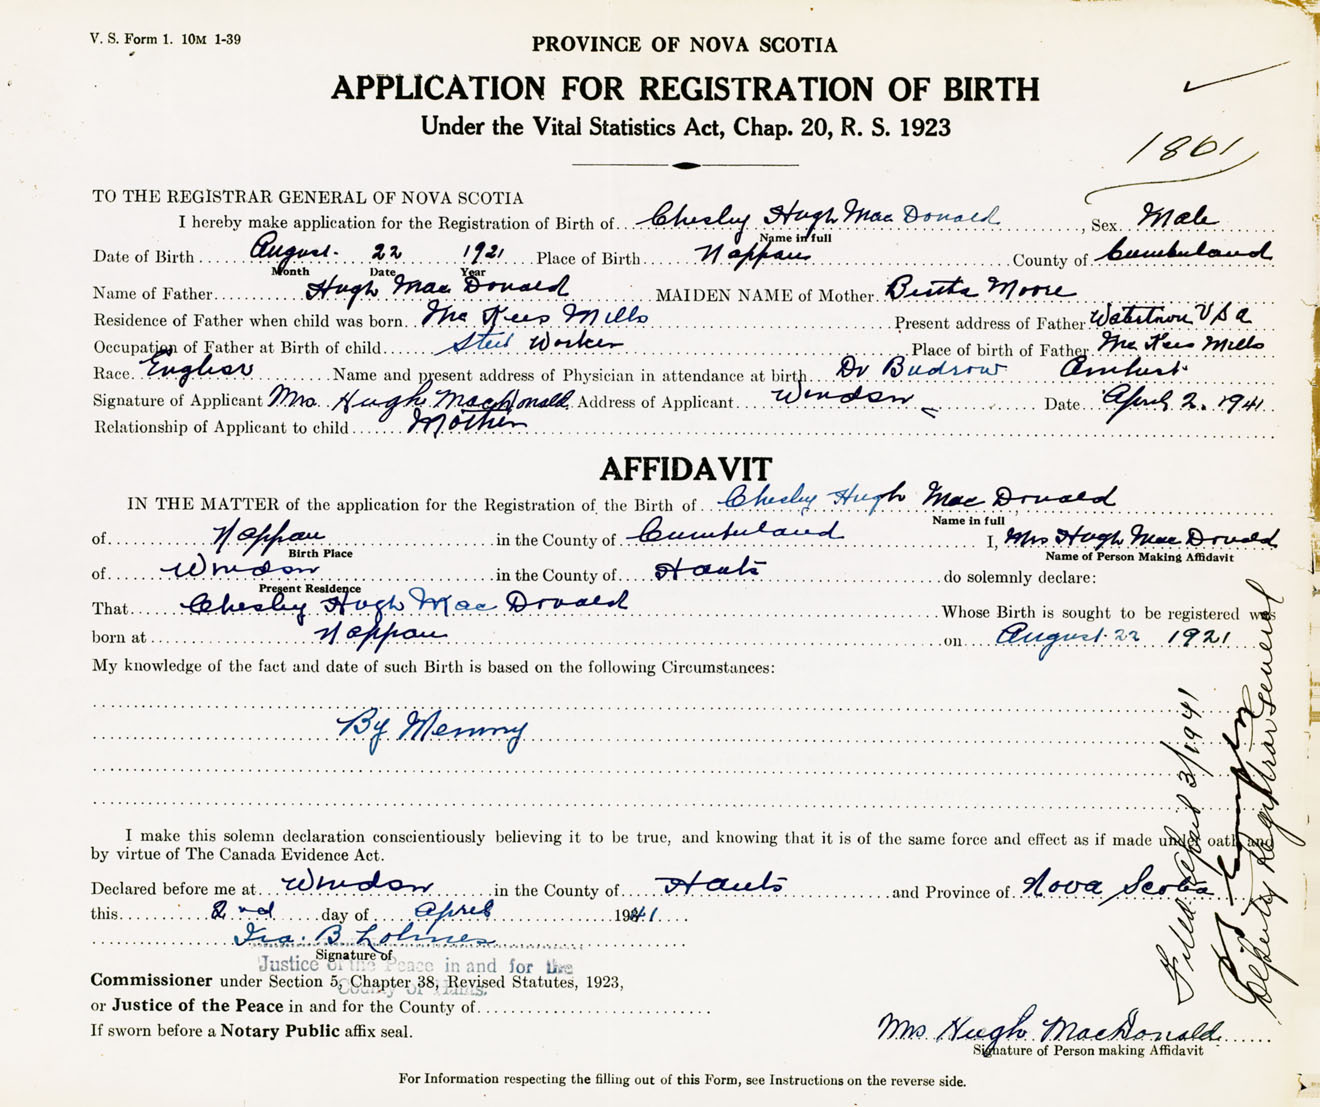 V. S. Form 1. 10M 1-39
PROVINCE OF NOVA SCOTIA
APPLICATION FOR REGISTRATION OF BIRTH
Under the Vital Statistics Act, Chap. 20, R. S. 1923
1861
TO THE REGISTRAR GENERAL OF NOVA SCOTIA
I hereby make application for the Registration of Birth of Chesley Hugh Mac Donald, Sex Male
Name in full
Date of Birth August 22 1921 Place of Birth Nappan County of Cumberland
Month Date Year
Name of Father Hugh Mac Donald MAIDEN NAME of Mother Moore
Residence of Father when child was born Mc Kees Mills Present address of Father Watertown USA
Occupation of Father at Birth of child Steel Worker Place of birth of Father Mc Kees Mills
Race English Name and present address of Physician in attendance at birth Dr Budrow Amherst
Signature of Applicant Mrs. Hugh MacDonald Address of Applicant Windsor Date April 2. 1941
Relationship of Applicant to child Mother
AFFIDAVIT
IN THE MATTER of the application for the Registration of the Birth of Chesley Hugh Mac Donald
Name in full
of Nappan in the County of Cumberland I, Mrs Hugh Mac Donald
Birth Place Name of Person Making Affidavit
of Windsor in the County of Hants do solemnly declare:
Present Residence
That Chesley Hugh Mac Donald Whose Birth is sought to be registered was
born at Nappan on August 22 1921
My knowledge of the fact and date of such Birth is based on the following Circumstances:
By Memory
I make this solemn declaration conscientiously believing it to be true, and knowing that it is of the same force and effect as if made under oath and
by virtue of The Canada Evidence Act.
Declared before me at Windsor in the County of Hants and Province of Nova Scotia
this 2nd day of April 1941
Ira B
Signature of
Justice of the Peace in and for the
County of Hants.
Commissioner under Section 5, Chapter 38, Revised Statutes, 1923,
or Justice of the Peace in and for the County of
If sworn before a Notary Public affix seal.
Mrs. Hugh MacDonald
Signature of Person making Affidavit
For Information respecting the filling out of this Form, see Instructions on the reverse side.
Filed April 3/1941
Deputy Registrar General